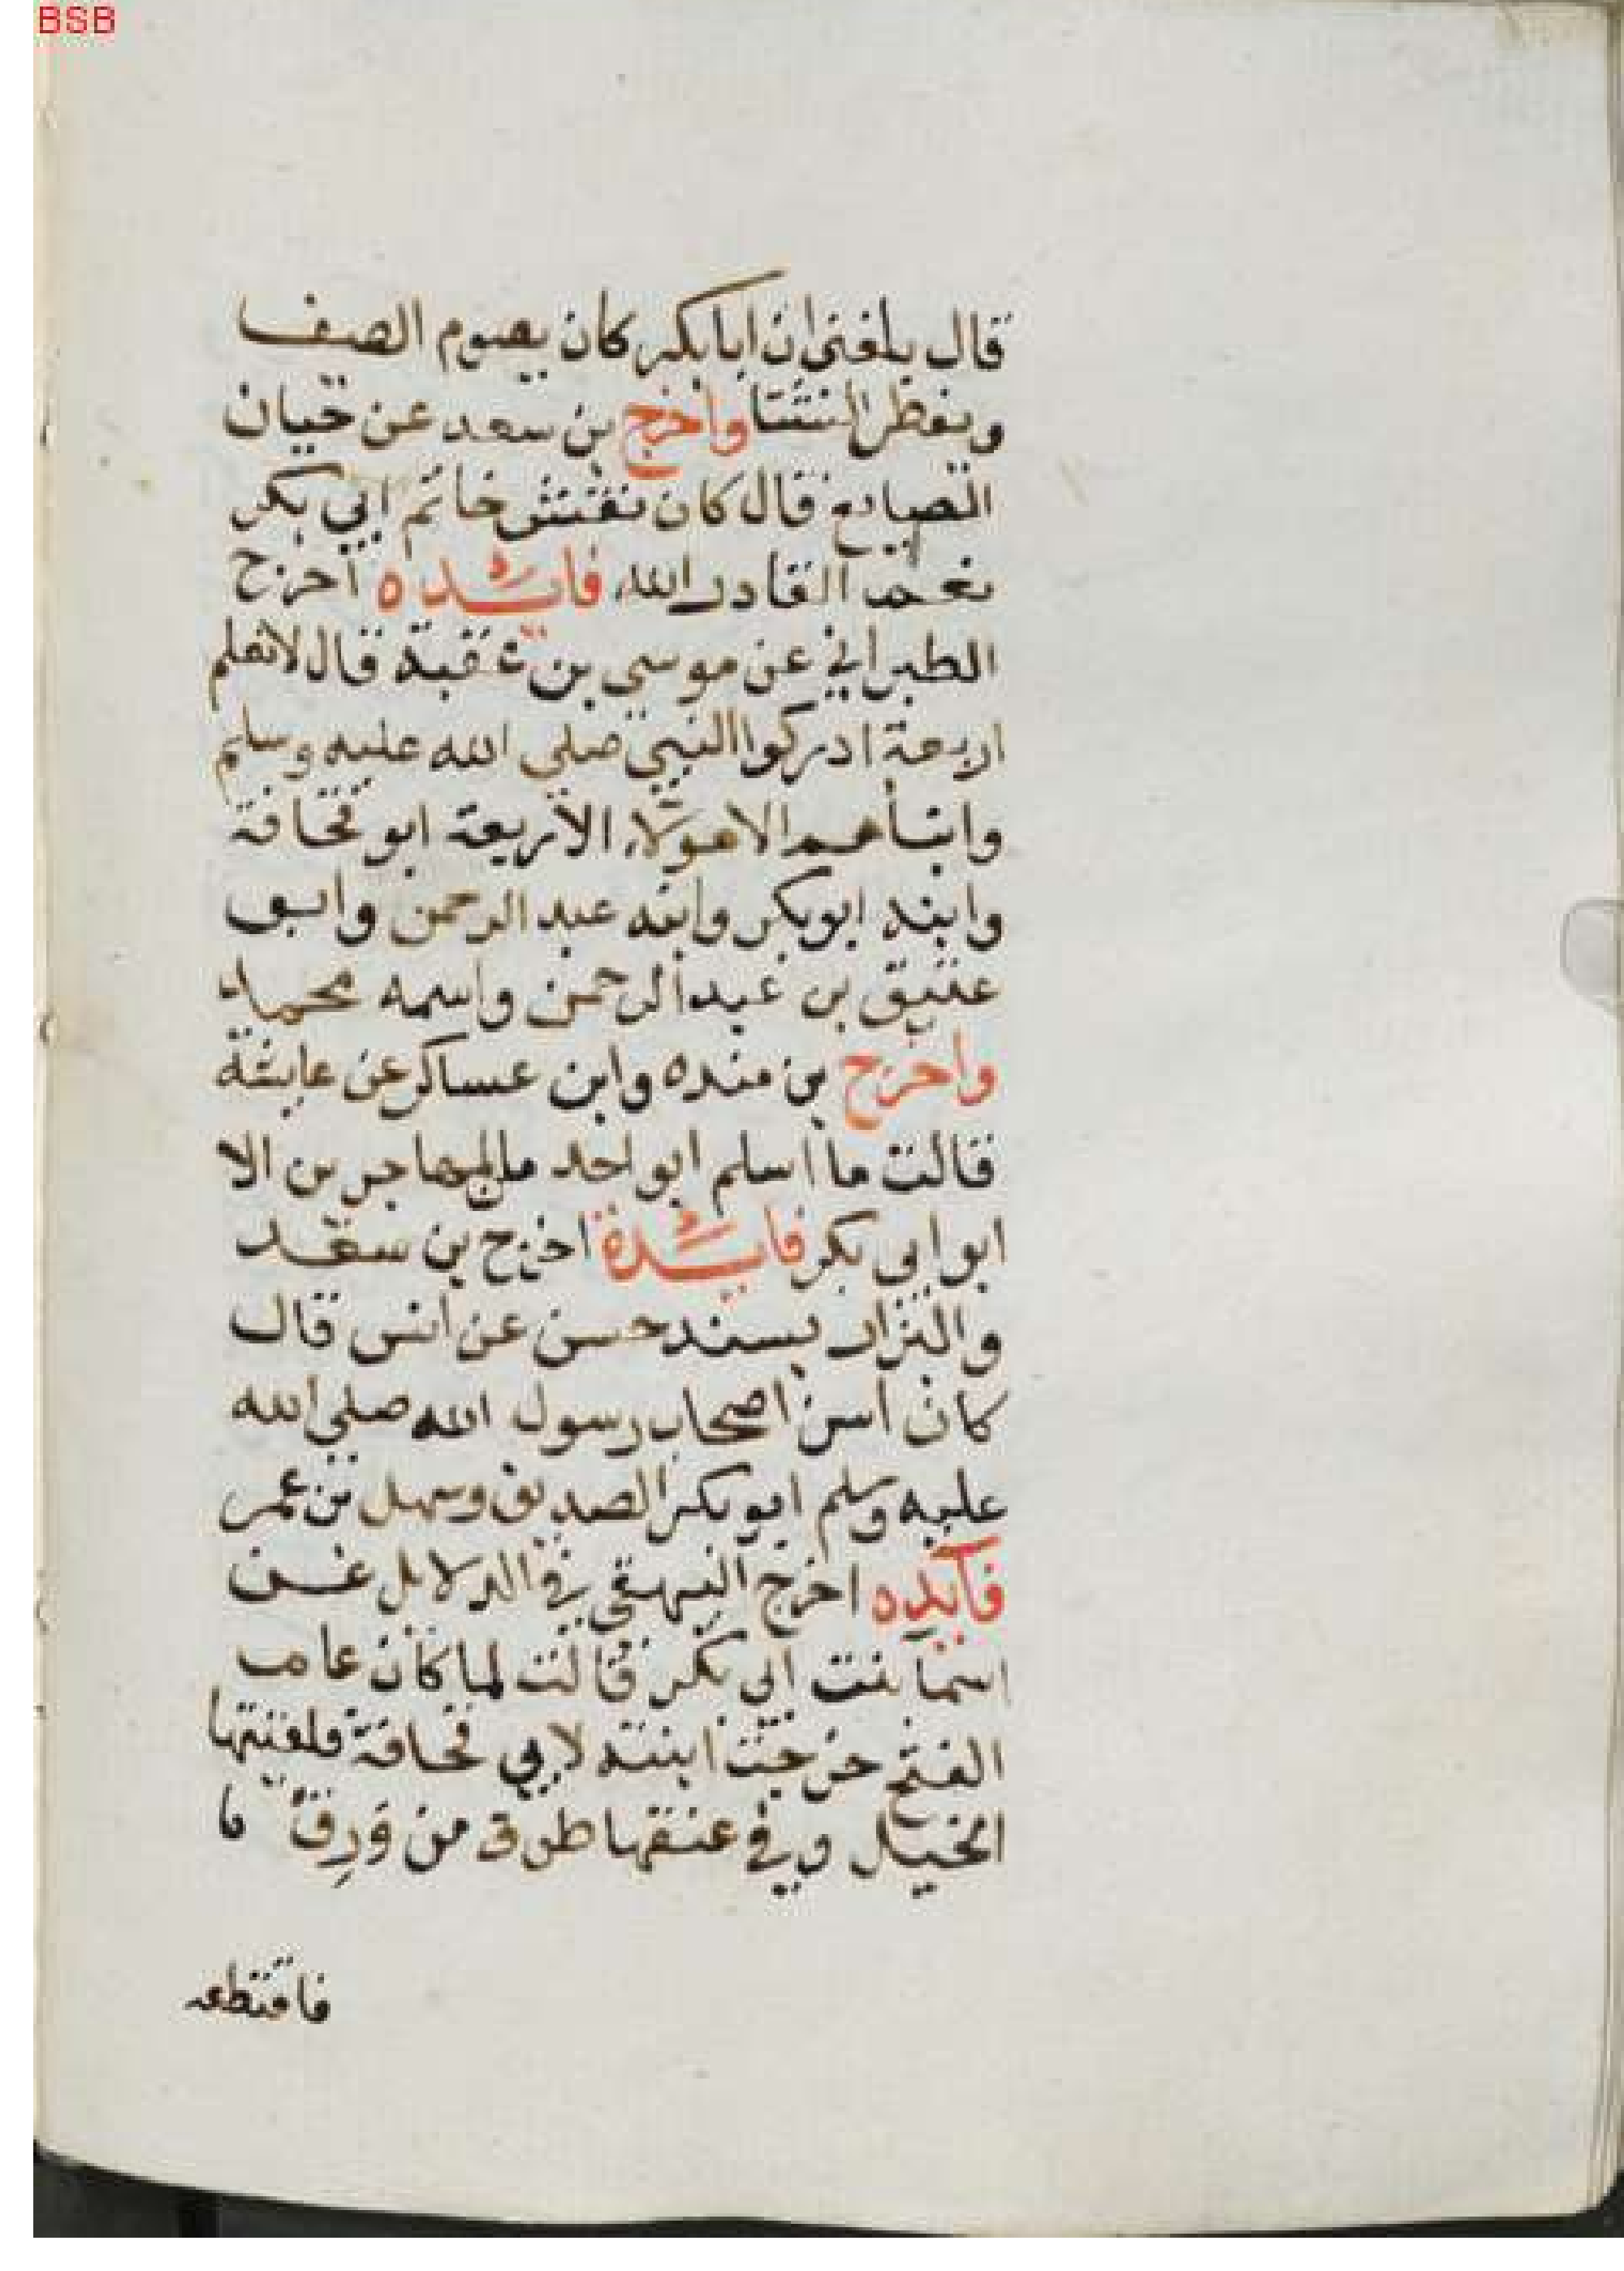 BSB
قال بلغني ان ابا بكر كان يصوم الصيف
ويفطر الشتا واخرج بن سعد عن حيان
الصايغ قال كان نقش خاتم ابي بكر
نعم القادر الله فائدة اخرج
الطبراني عن موسي بن عقبة قال لا نعلم
اربعة ادركوا النبي صلي الله عليه وسلم
وابناهم الا هولاء الاربعة ابو قحافة
وابنه ابو بكر وابنه عبد الرحمن وابو
عتيق بن عبد الرحمن واسمه محمد
واخرج بن منده وابن عساكر عن عايشة
قالت ما اسلم ابو احد من المهاجرين الا
ابو ابي بكر فائدة اخرج بن سعد
والبزار بسند حسن عن انس قال
كان اسن اصحاب رسول الله صلي الله
عليه وسلم ابو بكر الصديق وسهل بن عمر
فايده اخرج البيهقي في الدلايل عن
اسما بنت ابي بكر قالت لما كان عام
الفتح خرجت ابنته لابي قحافة فلقيتها
الخيل وفي عنقها طوق من وَرِقٌ فا
فاقتطعه